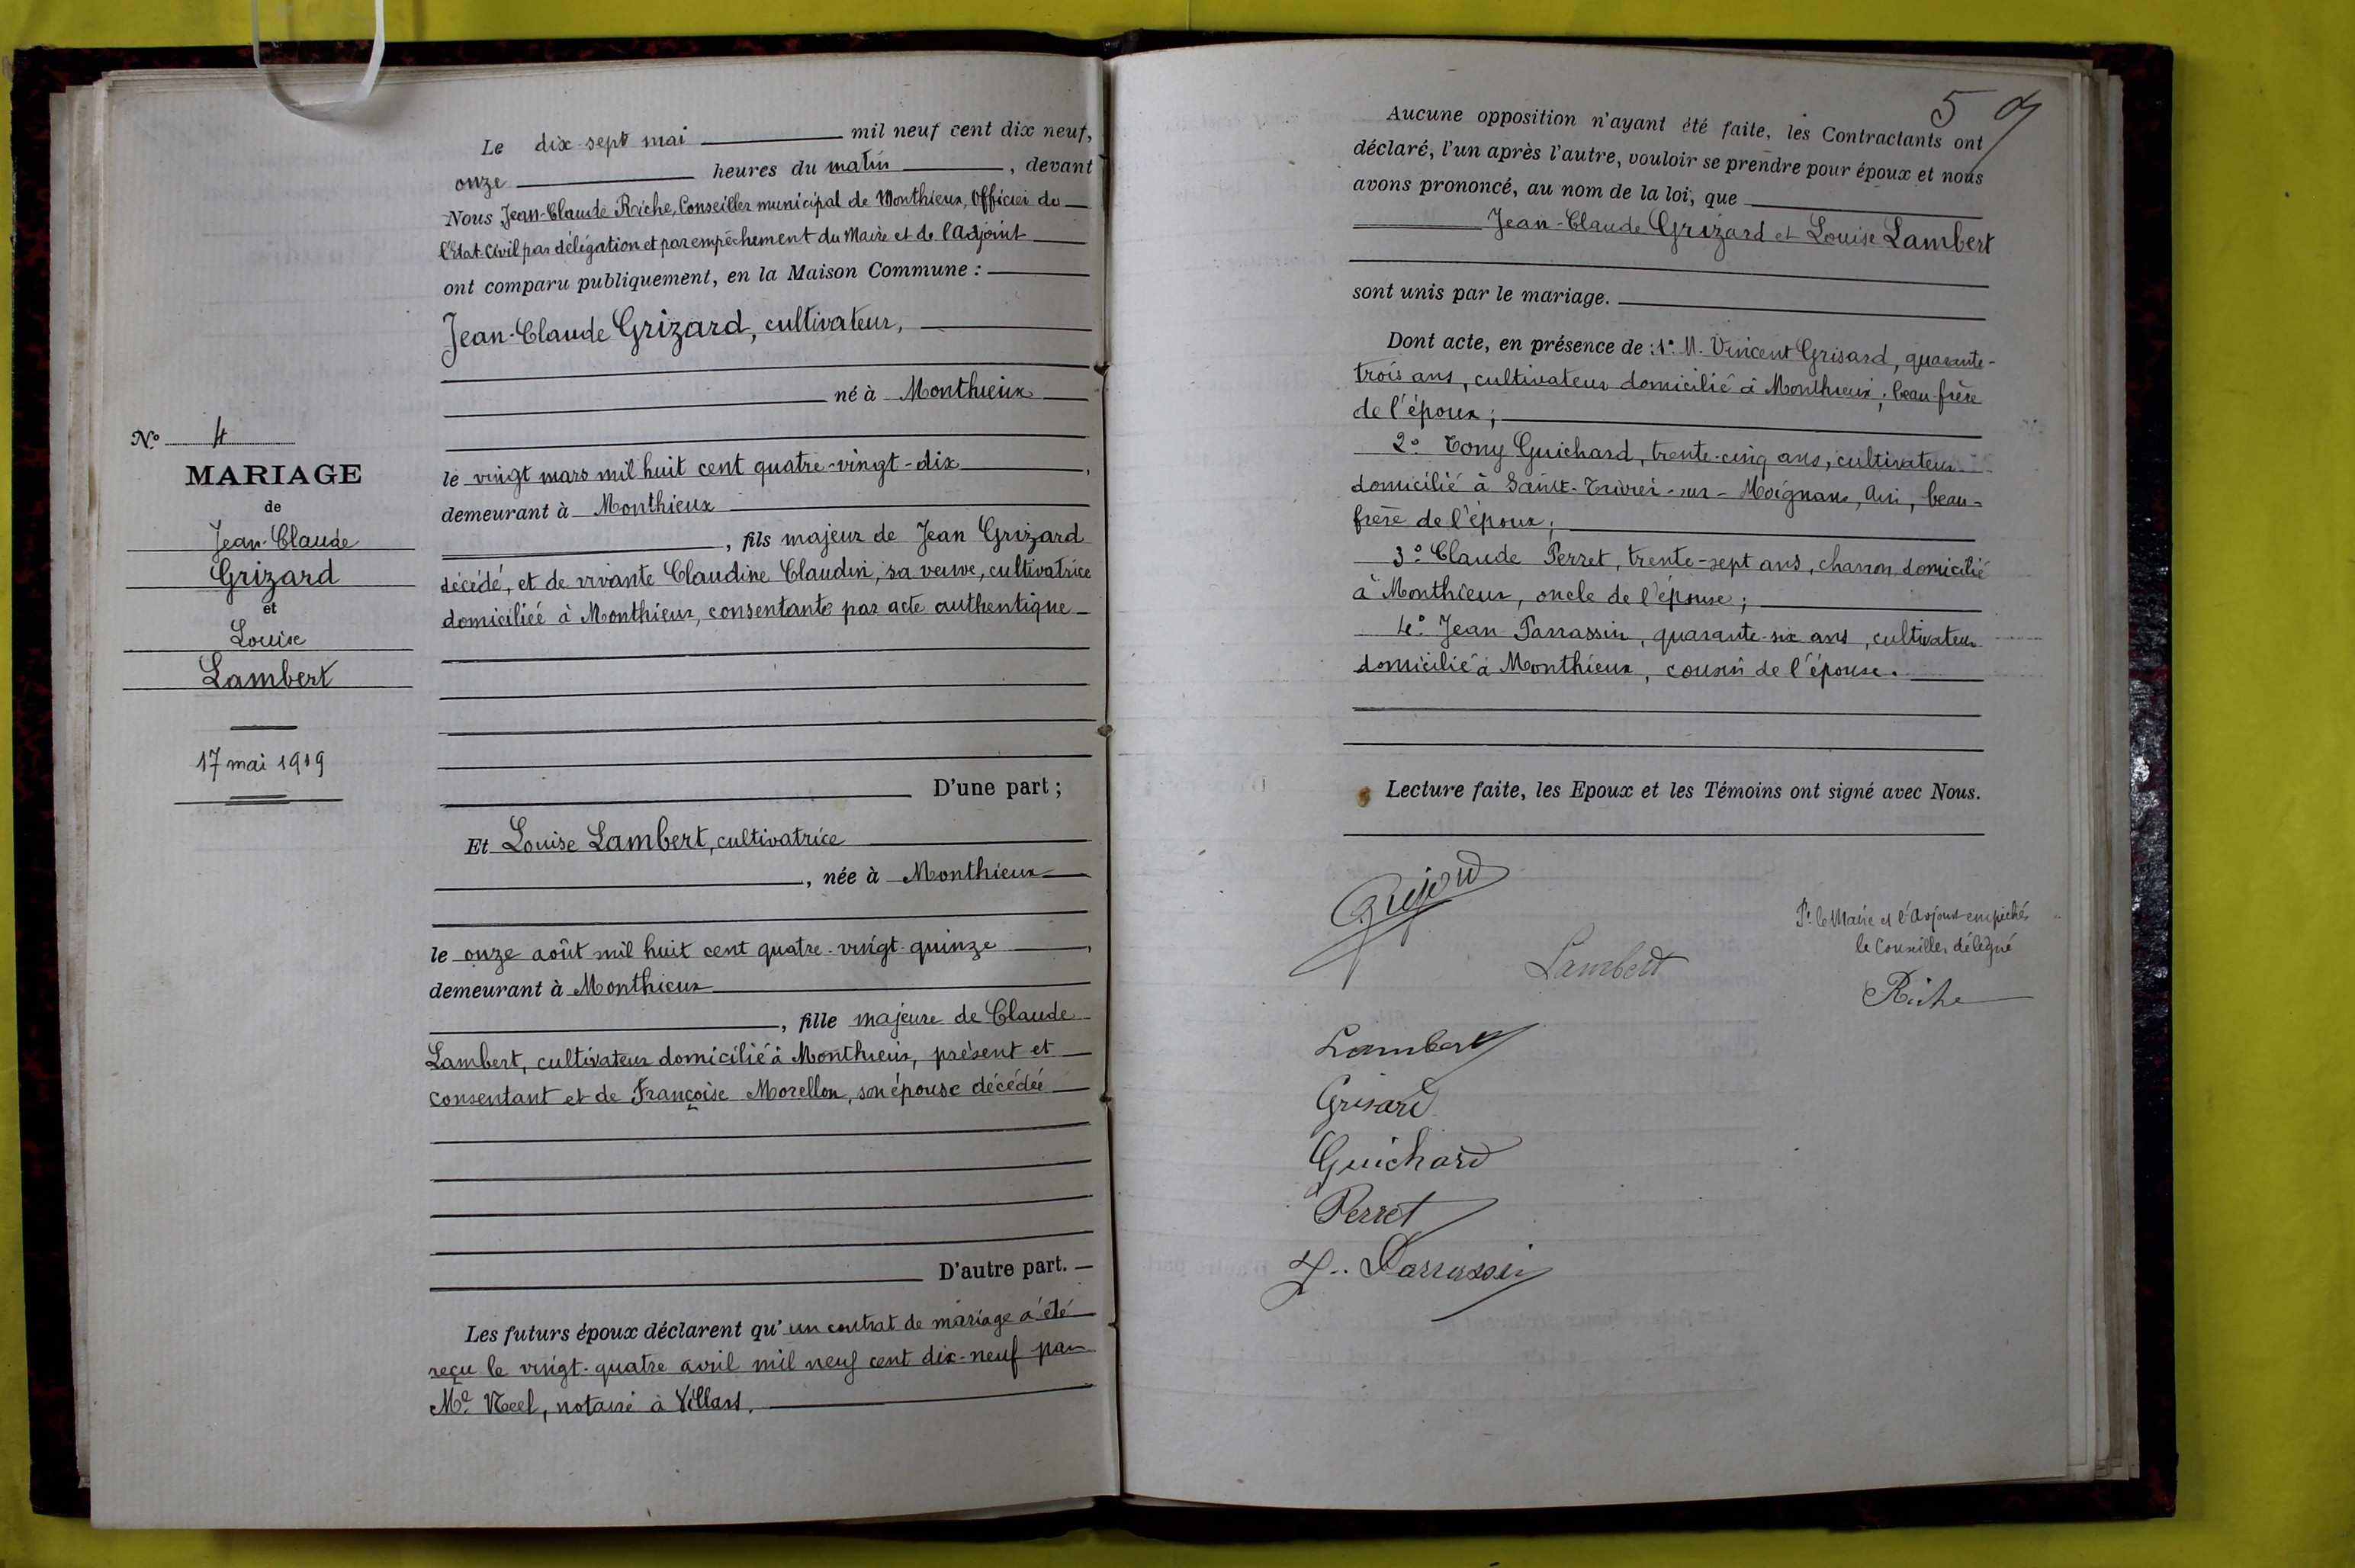 N° 4
MARIAGE
de
Jean-Claude
Grizard
et
Louise
Lambert
17 mai 1919
Le dix-sept mai mil neuf cent dix neuf,
onze heures du matin, devant
Nous Jean-Claude Riche, Conseiller municipal de Monthieux, Officier de
l'Etat-Civil par délégation et par empêchement du Maire et de l'Adjoint
ont comparu publiquement, en la Maison Commune :
Jean-Claude Grizard, cultivateur,
né à Monthieux
le vingt mars mil huit cent quatre-vingt-dix,
demeurant à Monthieux
, fils majeur de Jean Grizard
décédé, et de vivante Claudine Claudin, sa veuve, cultivatrice
domiciliée à Monthieux, consentante par acte authentique
D'une part ;
Et Louise Lambert, cultivatrice
, née à Monthieux
le onze août mil huit cent quatre-vingt-quinze,
demeurant à Monthieux
, fille majeure de Claude
Lambert, cultivateur domicilié à Monthieux, présent et
consentant et de Françoise Morellon, son épouse décédée
D'autre part.
Les futurs époux déclarent qu'un contrat de mariage a été
reçu le vingt-quatre avril mil neuf cent dix-neuf par
Me, notaire à Villars.
5
Aucune opposition n'ayant été faite, les Contractants ont
déclaré, l'un après l'autre, vouloir se prendre pour époux et nous
avons prononcé, au nom de la loi, que
Jean-Claude Grizard et Louise Lambert
sont unis par le mariage.
Dont acte, en présence de : 1° M. Vincent Grisard, quarante-
trois ans, cultivateur domicilié à Monthieux, beau-frère
de l'époux ;
2° Tony Guichard, trente-cinq ans, cultivateur
domicilié à Saint-Trivier-sur-Moignans, Ain, beau-
frère de l'époux ;
3° Claude Perret, trente-sept ans, charron domicilié
à Monthieux, oncle de l'épouse ;
4° Jean Parrassin, quarante-six ans, cultivateur
domicilié à Monthieux, cousin de l'épouse.
Lecture faite, les Epoux et les Témoins ont signé avec Nous.
Pr le Maire et l'Adjoint empêchés
le Conseiller délégué
Lambert
Riche
Lambert
Grisard
Guichard
Perret
J. Parrassin